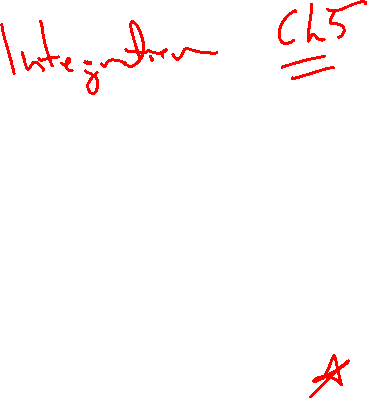 Integration Ch5